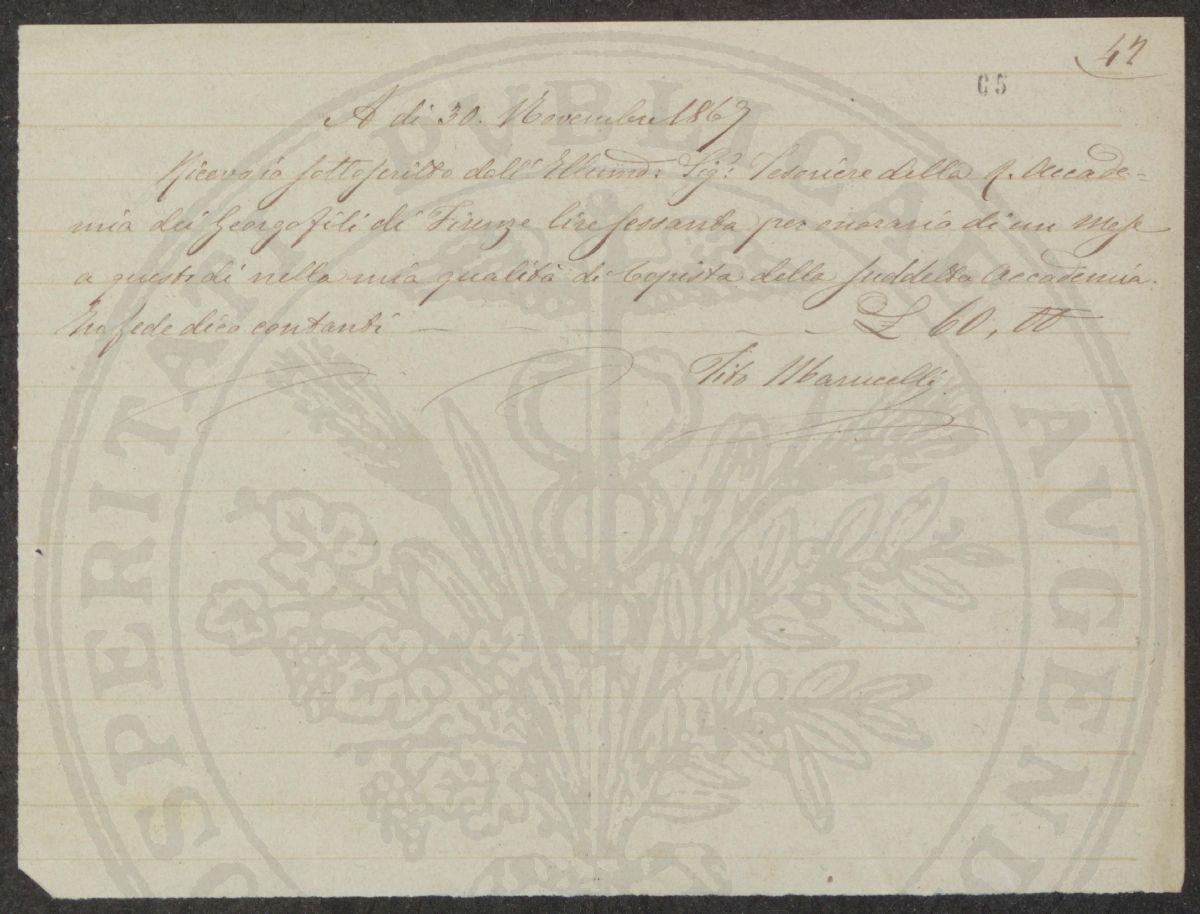 42
65
A di 30. Novembre 1867
Ricevo io sottoscritto dall' Illumo: Sig: Tesoriere della R. Accade=
mia dei Georgofili di Firenze lire sessanta per onorario di un mese
a questo di nella mia qualità di Copista della suddetta Accademia.
In fede dico contanti — — — — £ 60, 00
Tito Marucelli
PROSPERITATI PUBLICAE AUGENDAE